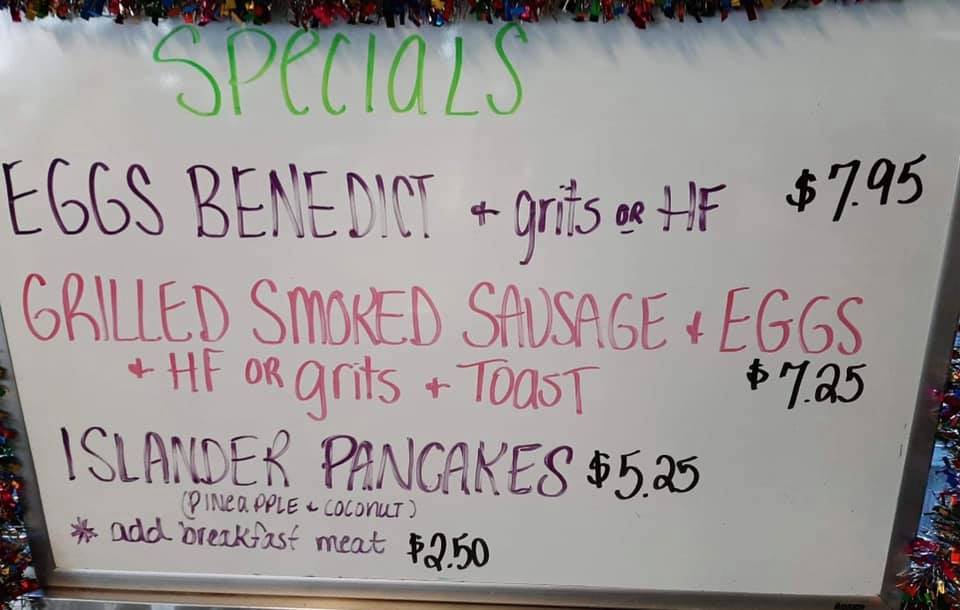 SPecIaLS
EGGS BENEDICT + grits OR HF $7.95
GRILLED SMOKED SAUSAGE + EGGS
+ HF OR grits + TOaST $7.25
ISLANDER PANCAKES $5.25
(PINeaPPLE + COCONUT)
* add breakfast meat $2.50